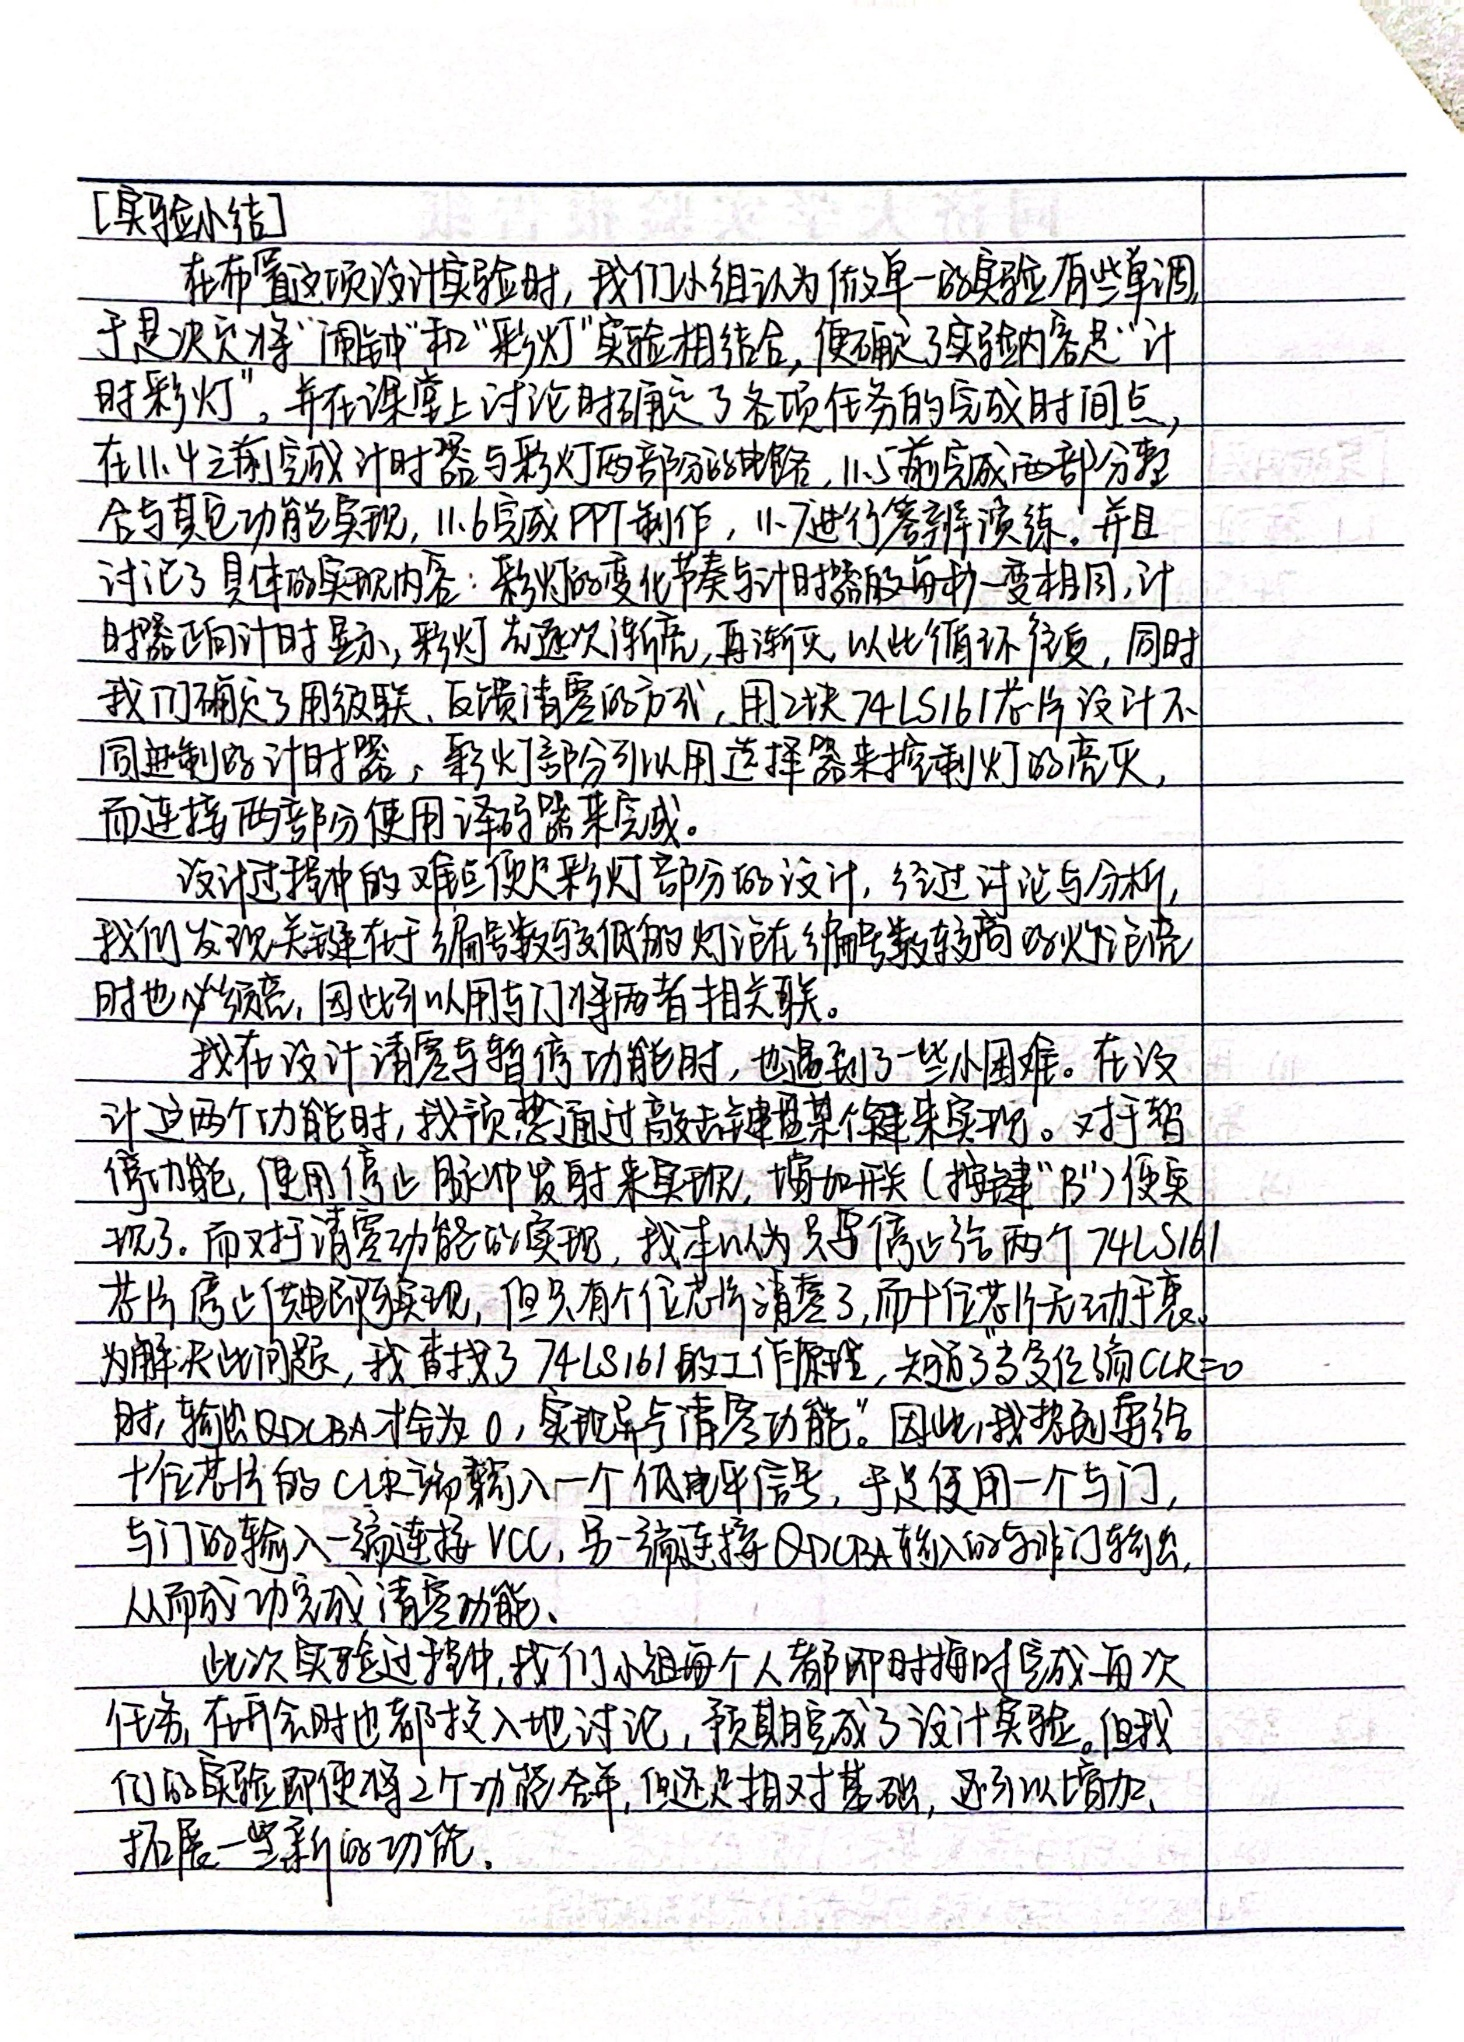 [实验小结]
在布置这项设计实验时，我们小组认为做单一的实验有些单调，
于是决定将“闹钟”和“彩灯”实验相结合，便确定了实验内容是“计
时彩灯”。并在课堂上讨论时确定了各项任务的完成时间点，
在11.4之前完成计时器与彩灯两部分的电路，11.5前完成两部分整
合与其它功能实现，11.6完成PPT制作，11.7进行答辩演练。并且
讨论了具体的实现内容：彩灯的变化节奏与计时器的每秒一变相同，计
时器正向计时显示，彩灯先逐次渐亮，再渐灭，以此循环往复，同时
我们确定了用级联、反馈清零的方式，用2块74LS161芯片设计不
同进制的计时器，彩灯部分可以用选择器来控制灯的亮灭，
而连接两部分使用译码器来完成。
设计过程中的难点便是彩灯部分的设计，经过讨论与分析，
我们发现关键在于编号数较低的灯泡在编号数较高的灯泡亮
时也必须亮，因此可以用与门将两者相关联。
我在设计清零与暂停功能时，也遇到了一些小困难。在设
计这两个功能时，我预想通过敲击键盘某个键来实现。对于暂
停功能，使用停止脉冲发射来实现，增加开关（按键“B”）便实
现了。而对于清零功能的实现，我本以为只要停止给两个74LS161
芯片停止供电即可实现，但只有个位芯片清零了，而十位芯片无动于衷。
为解决此问题，我查找了74LS161的工作原理，知道了“当复位端CLR=0
时，输出QDCBA才会为0，实现异步清零功能”。因此，我想到要给
十位芯片的CLR端输入一个低电平信号，于是使用一个与门，
与门的输入一端连接VCC，另一端连接QDCBA输入的与非门输出，
从而成功完成清零功能、
此次实验过程中，我们小组每个人都即时按时完成每次
任务，在开会时也都投入地讨论，预期完成了设计实验。但我
们的实验即便将2个功能合并，但还是相对基础，还可以增加、
拓展一些新的功能．